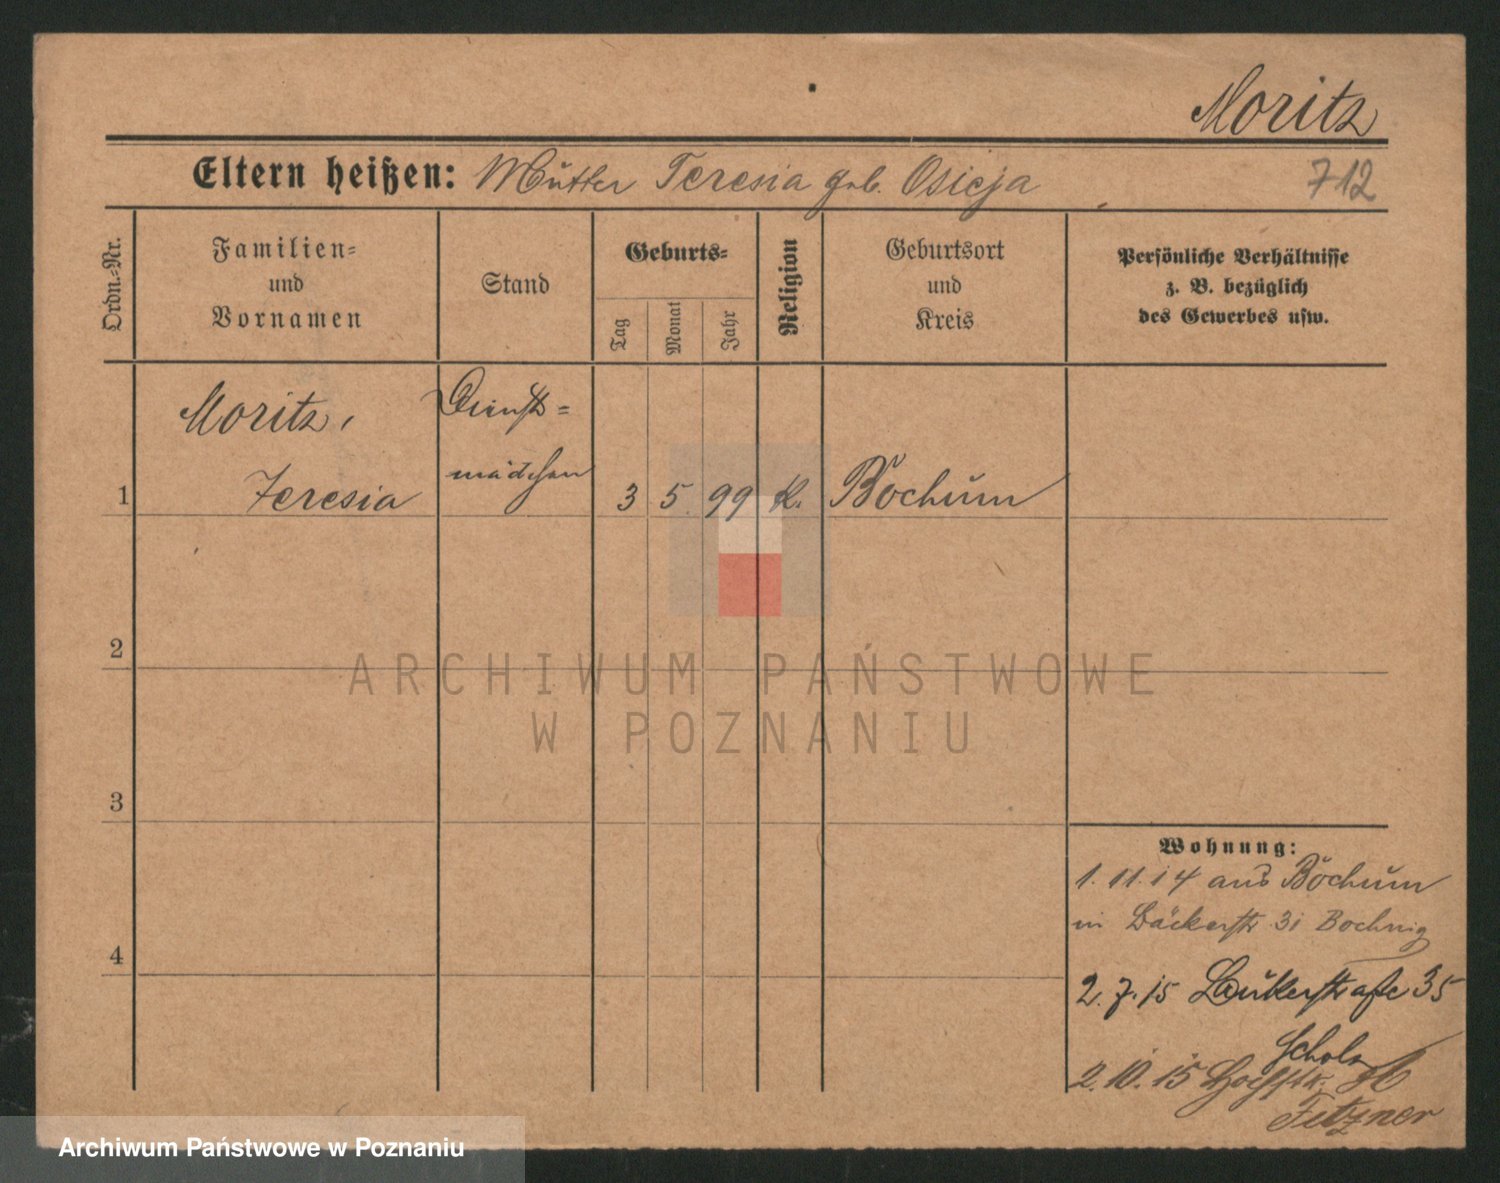 Moritz
Eltern heißen: Mutter Teresia geb. Osieja
712
Ordn.-Nr.
Familien-
und
Vornamen
Stand
Geburts-
Tag
Monat
Jahr
Religion
Geburtsort
und
Kreis
Persönliche Verhältnisse
z. B. bezüglich
des Gewerbes usw.
Moritz,
Dienst-
1 Teresia mädchen 3 5. 99 K. Bochum
2
ARCHIWUM PAŃSTWOWE
W POZNANIU
3
Wohnung:
1.11.14 aus Bochum
in Bäckerstr 31 Bochnig
4
2.7.15 35
Scholz
2.10.15
Fetzner
Archiwum Państwowe w Poznaniu